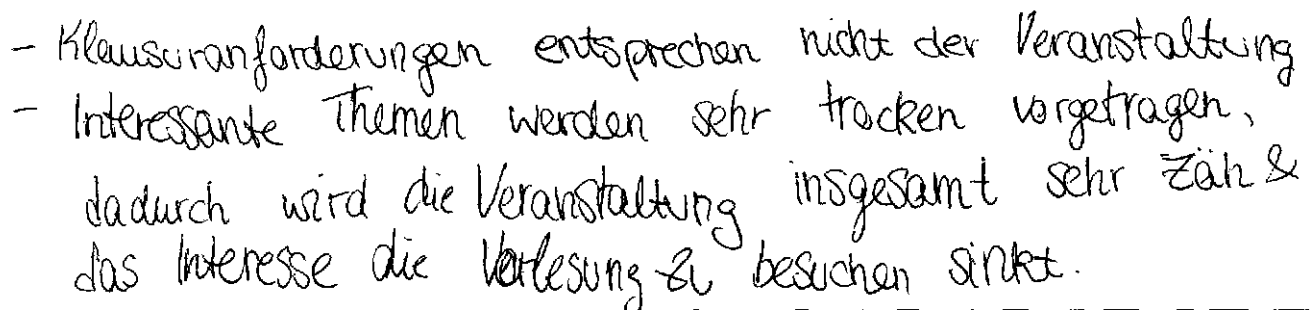 - Klausuranforderungen entsprechen nicht der Veranstaltung
- Interessante Themen werden sehr trocken vorgetragen,
dadurch wird die Veranstaltung insgesamt sehr zäh &
das Interesse die Vorlesung zu besuchen sinkt.